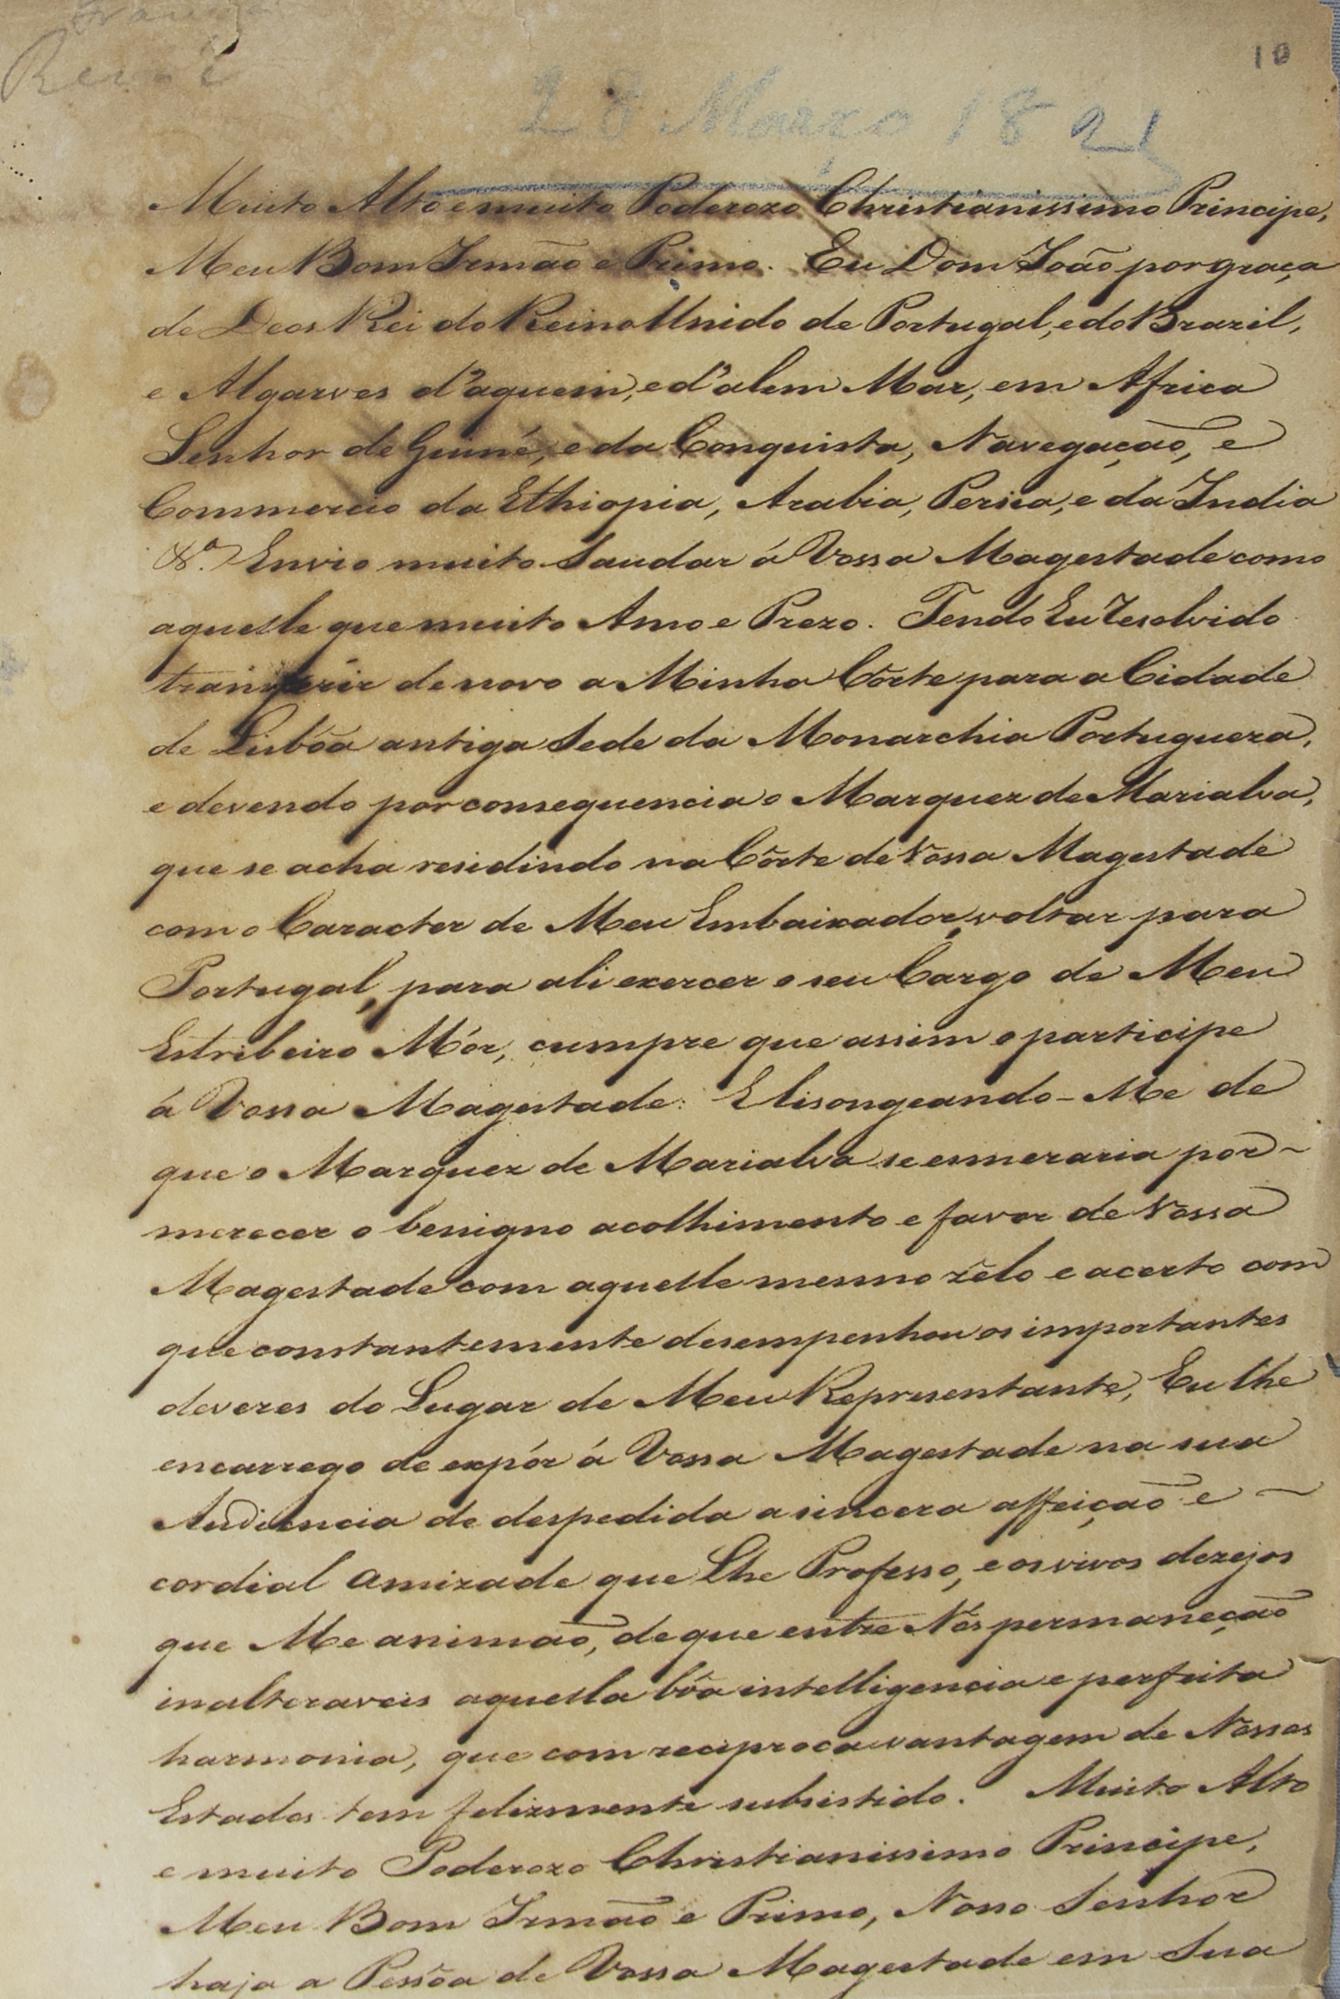 10
28 Março 1821
Muito Alto e muito Poderozo Christianissimo Principe,
Meu Bom Irmão e Primo. Eu Dom João por graça
de Deos Rei do Reino Unido de Portugal, e do Brazil,
e Algarves d'aquem, e d'alem Mar, em Africa
Senhor de Guiné, e da Conquista, Navegação, e
Commercio da Ethiopia, Arabia, Persia, e da India
&ª. Envio muito Saudar á Vossa Magestade como
aquelle que muito Amo e Prezo. Tendo Eu resolvido
transferir de novo a Minha Côrte para a Cidade
de Lisbôa antiga Sede da Monarchia Portugueza,
e devendo por consequencia o Marquez de Marialva,
que se acha residindo na Côrte de Vossa Magestade
com o Caracter de Meu Embaixador, voltar para
Portugal, para ali exercer o seu Cargo de Meu
Estribeiro Mór, cumpre que assim o participe
á Vossa Magestade: E lisongeando-Me de
que o Marquez de Marialva se esmeraria por
merecer o benigno acolhimento e favor de Vossa
Magestade com aquelle mesmo zêlo e acerto com
que constantemente desempenhou os importantes
deveres do Lugar de Meu Representante, Eu lhe
encarrego de expôr á Vossa Magestade na sua
Audiencia de despedida a sincera affeição e
cordial amizade que Lhe Professo, e os vivos dezejos
que Me animão, de que entre Nós permaneção
inalteraveis aquella bôa intelligencia e perfeita
harmonia, que com reciproca vantagem de Nossos
Estados tem felizmente subsistido. Muito Alto
e muito Poderozo Christianissimo Principe,
Meu Bom Irmão e Primo, Nosso Senhor
haja a Pessôa de Vossa Magestade em Sua